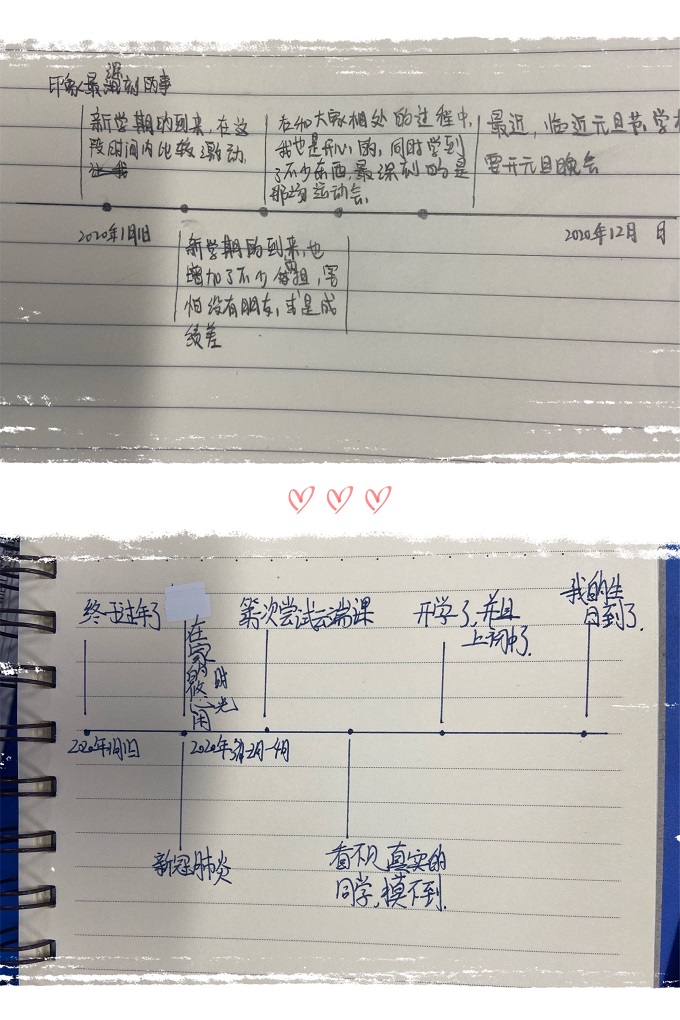 印象最深刻的事
新学期的到来,在这
段时间内比较激动,
在和大家相处的过程中,
我也是开心的,同时学到
了不少东西,最深刻的是
那场运动会。
最近,临近元旦节,学校
要开元旦晚会
2020年1月1日
2020年12月 日
新学期的到来,也
增加了不少的担,害
怕没有朋友,或是成
绩差
终于过年了
在家的
时光
第一次尝试云端课
开学了,并且
上初中了.
我的生
日到了.
2020年1月1日
2020年2月-4月
新冠肺炎
看不见真实的
同学,摸不到.